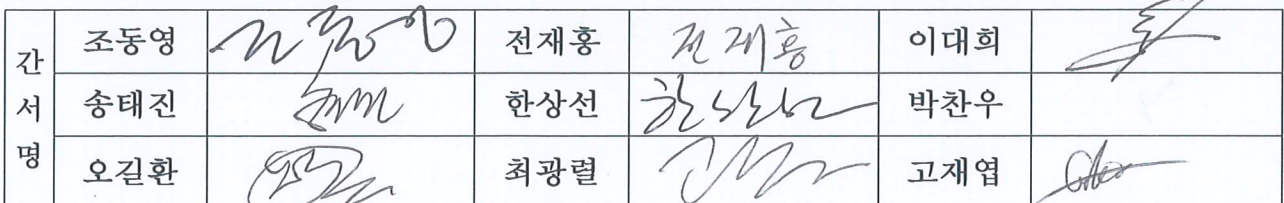 간 서 명
조동영 전재홍 전재홍 이대희
송태진 한상선 한상선 박찬우
오길환 최광렬 고재엽